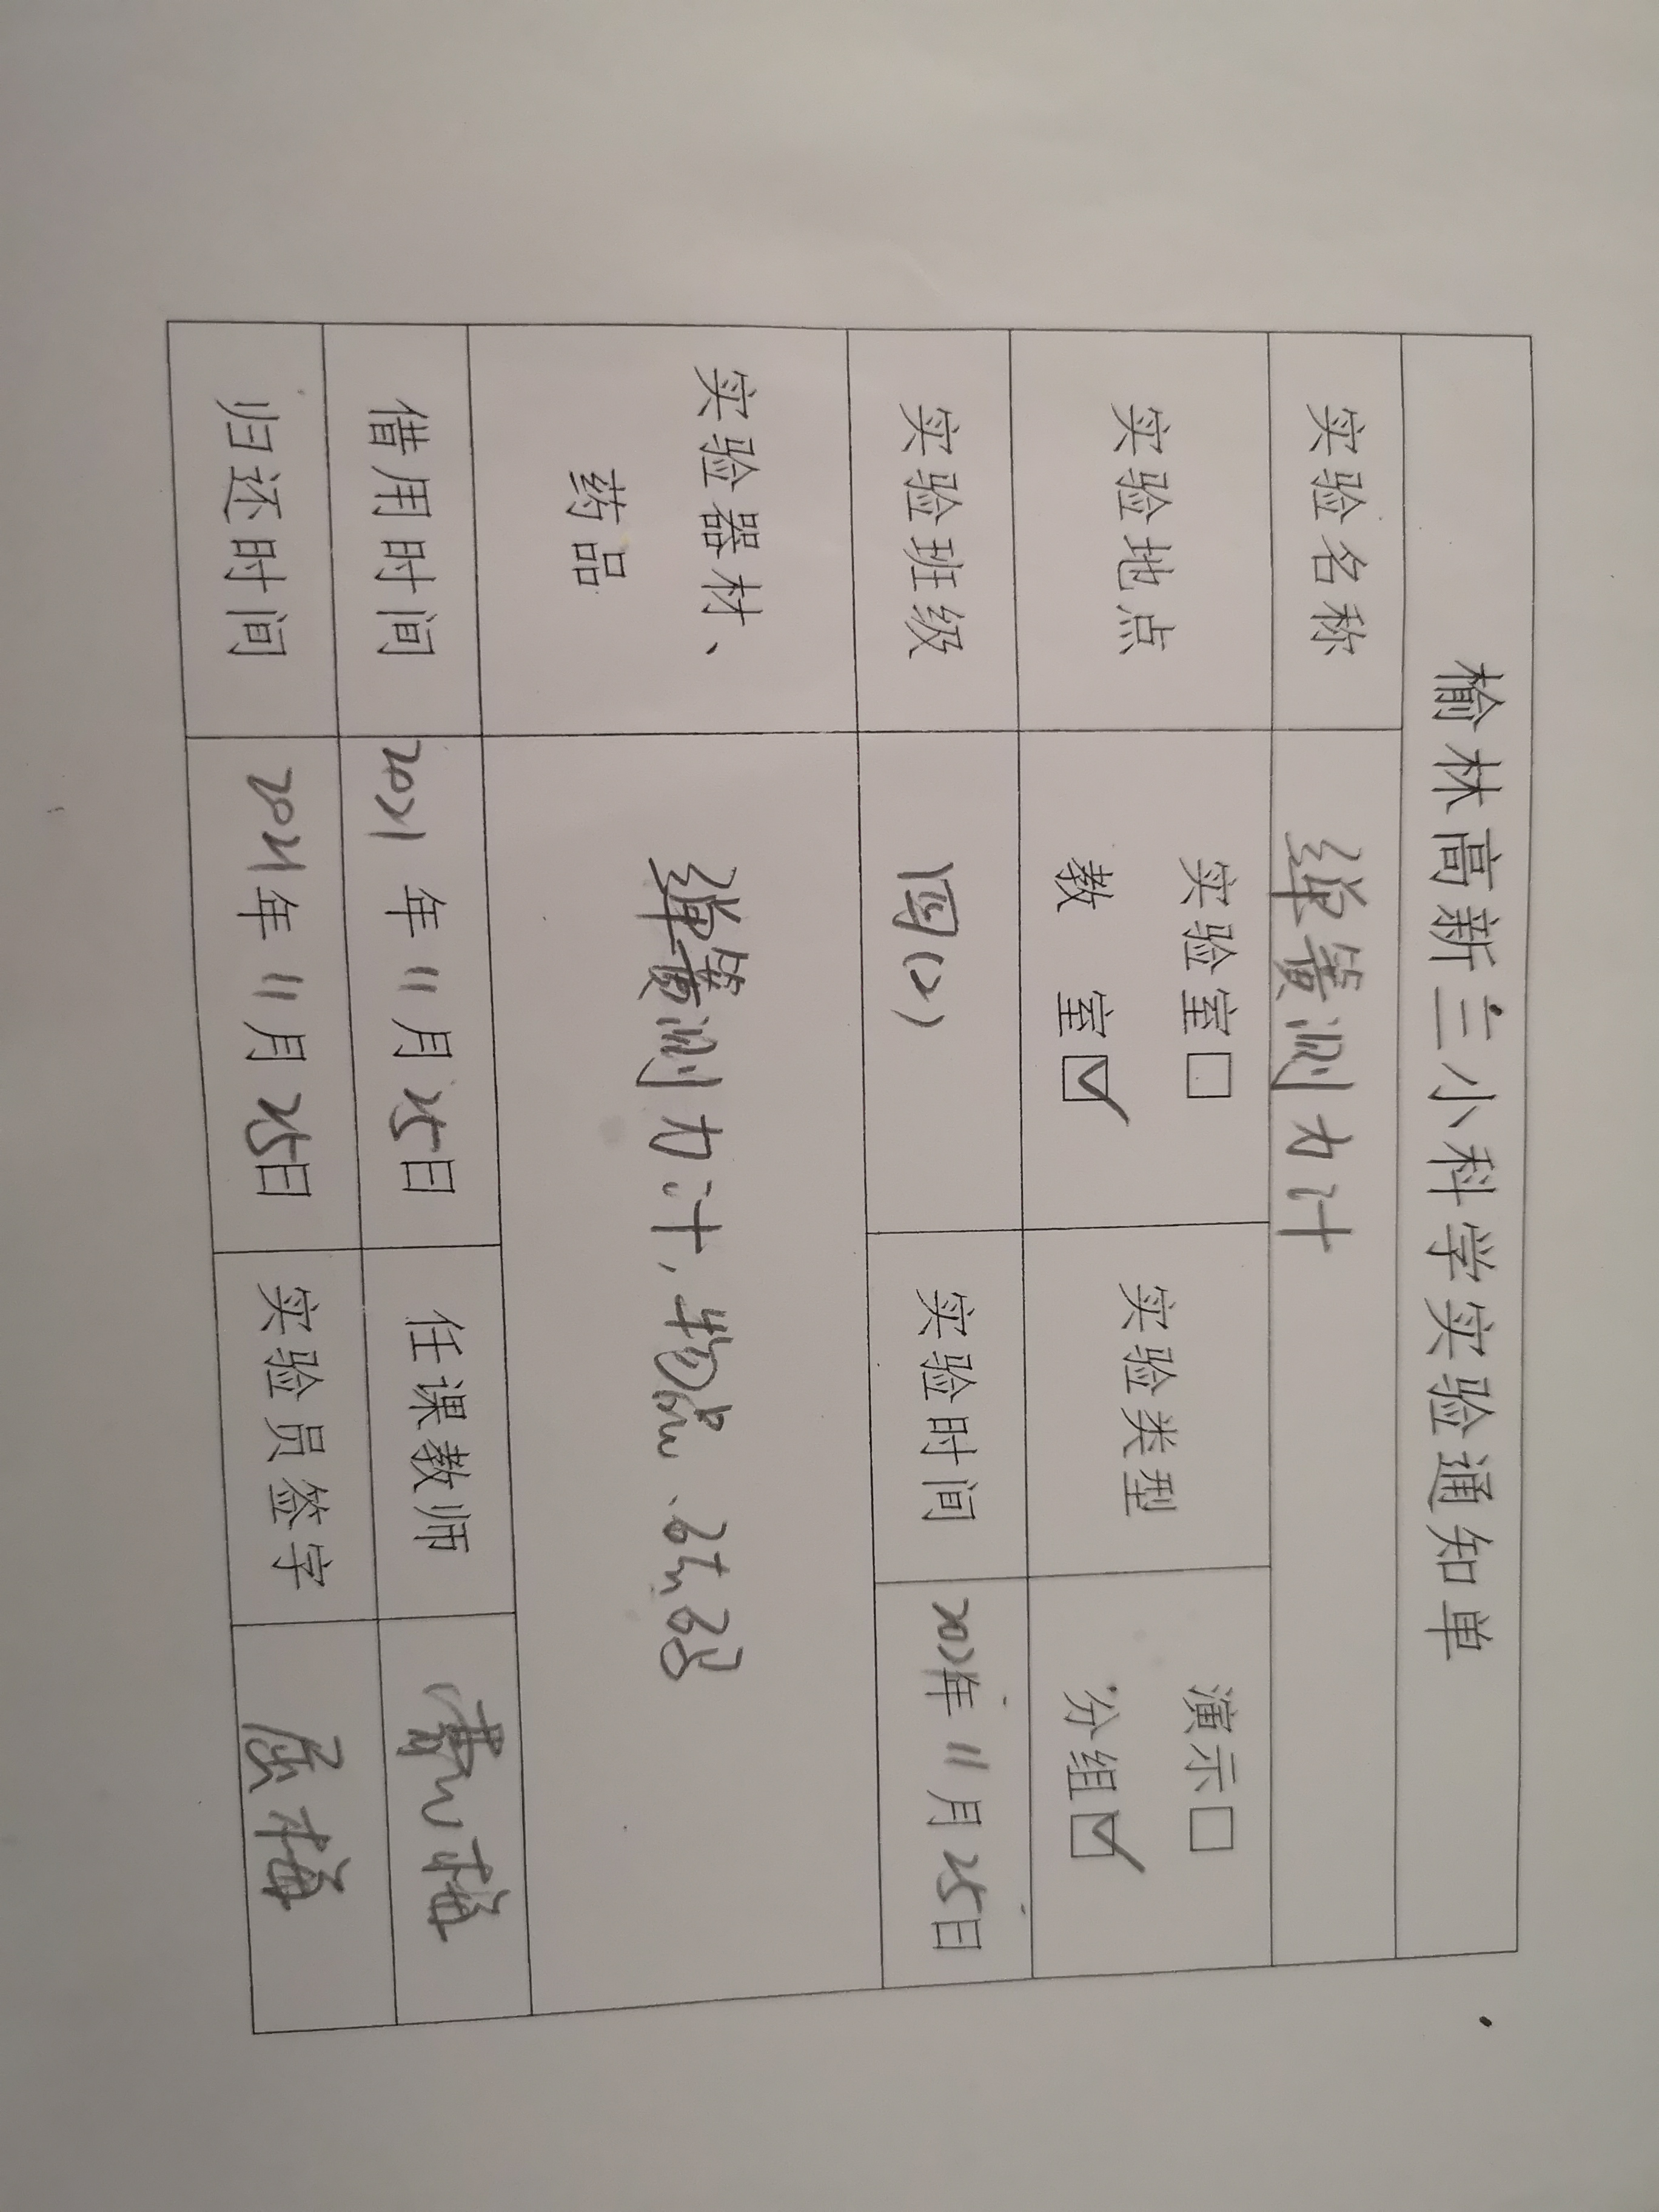 榆林高新三小科学实验通知单
实验名称 弹簧测力计
实验地点 实验室□ 实验类型 演示□
教 室☑ 分组☑
实验班级 四(2) 实验时间 2021年11月25日
实验器材、 弹簧测力计,物体、砝码
药品
借用时间 2021年11月25日 任课教师
归还时间 2021年11月25日 实验员签字